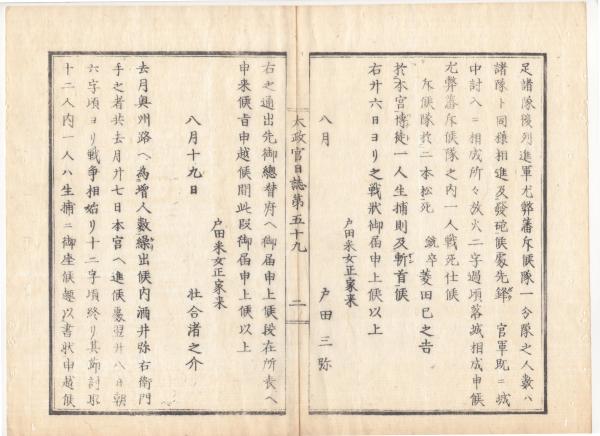 足諸隊後列進軍尤弊藩斥候隊一分隊之人数ハ
諸隊ト同様相進及發砲候處先鋒 官軍既ニ城
中討入ニ相成所々放火二字過頃落城相成申候
尤弊藩斥候隊之内一人戦死仕候
斥候隊於二本松死 銃卒 菱田巳之吉
於本宮博徒一人生捕則及斬首候
右廿六日ヨリ之戦状御届申上候以上
戸田釆女正家来
八月 戸田三弥
太政官日誌第五十九 二
右之通出先御總督府ヘ御届申上候段在所表ヘ
申来候旨申越候間此段御届申上候以上
戸田釆女正家来
八月十九日 社合渚之介
去月奥州路ヘ為増人数繰出候内酒井弥右衛門
手之者共去月廿七日本宮ヘ進候裏翌廿八日朝
六字頃ヨリ戦争相始リ十二字頃終リ其節討取
十二人内一人ハ生捕ニ御座候趣以書状申越候